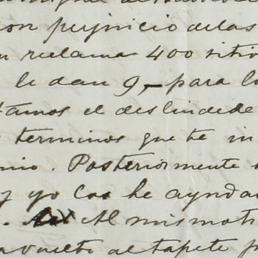 con perjuicio de las
reclama 400 sitio
le dan 9,- para l
tamos el deslinde de
terminos que te in
nio. Posteriormente
z yo las he ayuda
. Al mismo ti
a vuelto al tapete p